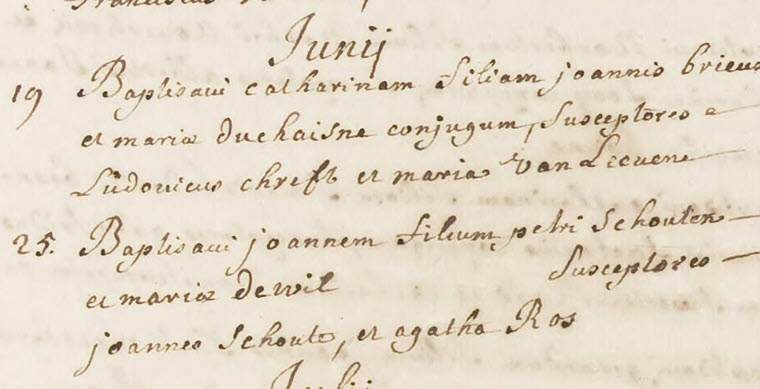 Junij
19 Baptisavi catharinam filiam joannis brieus
et mariæ duchaisne conjugum, Susceptores
Ludovicus chreft et maria Van Leevene
25. Baptisavi joannem filium petri Schouten
et mariæ dewit Susceptores
joannes Schoute, et agatha Ros